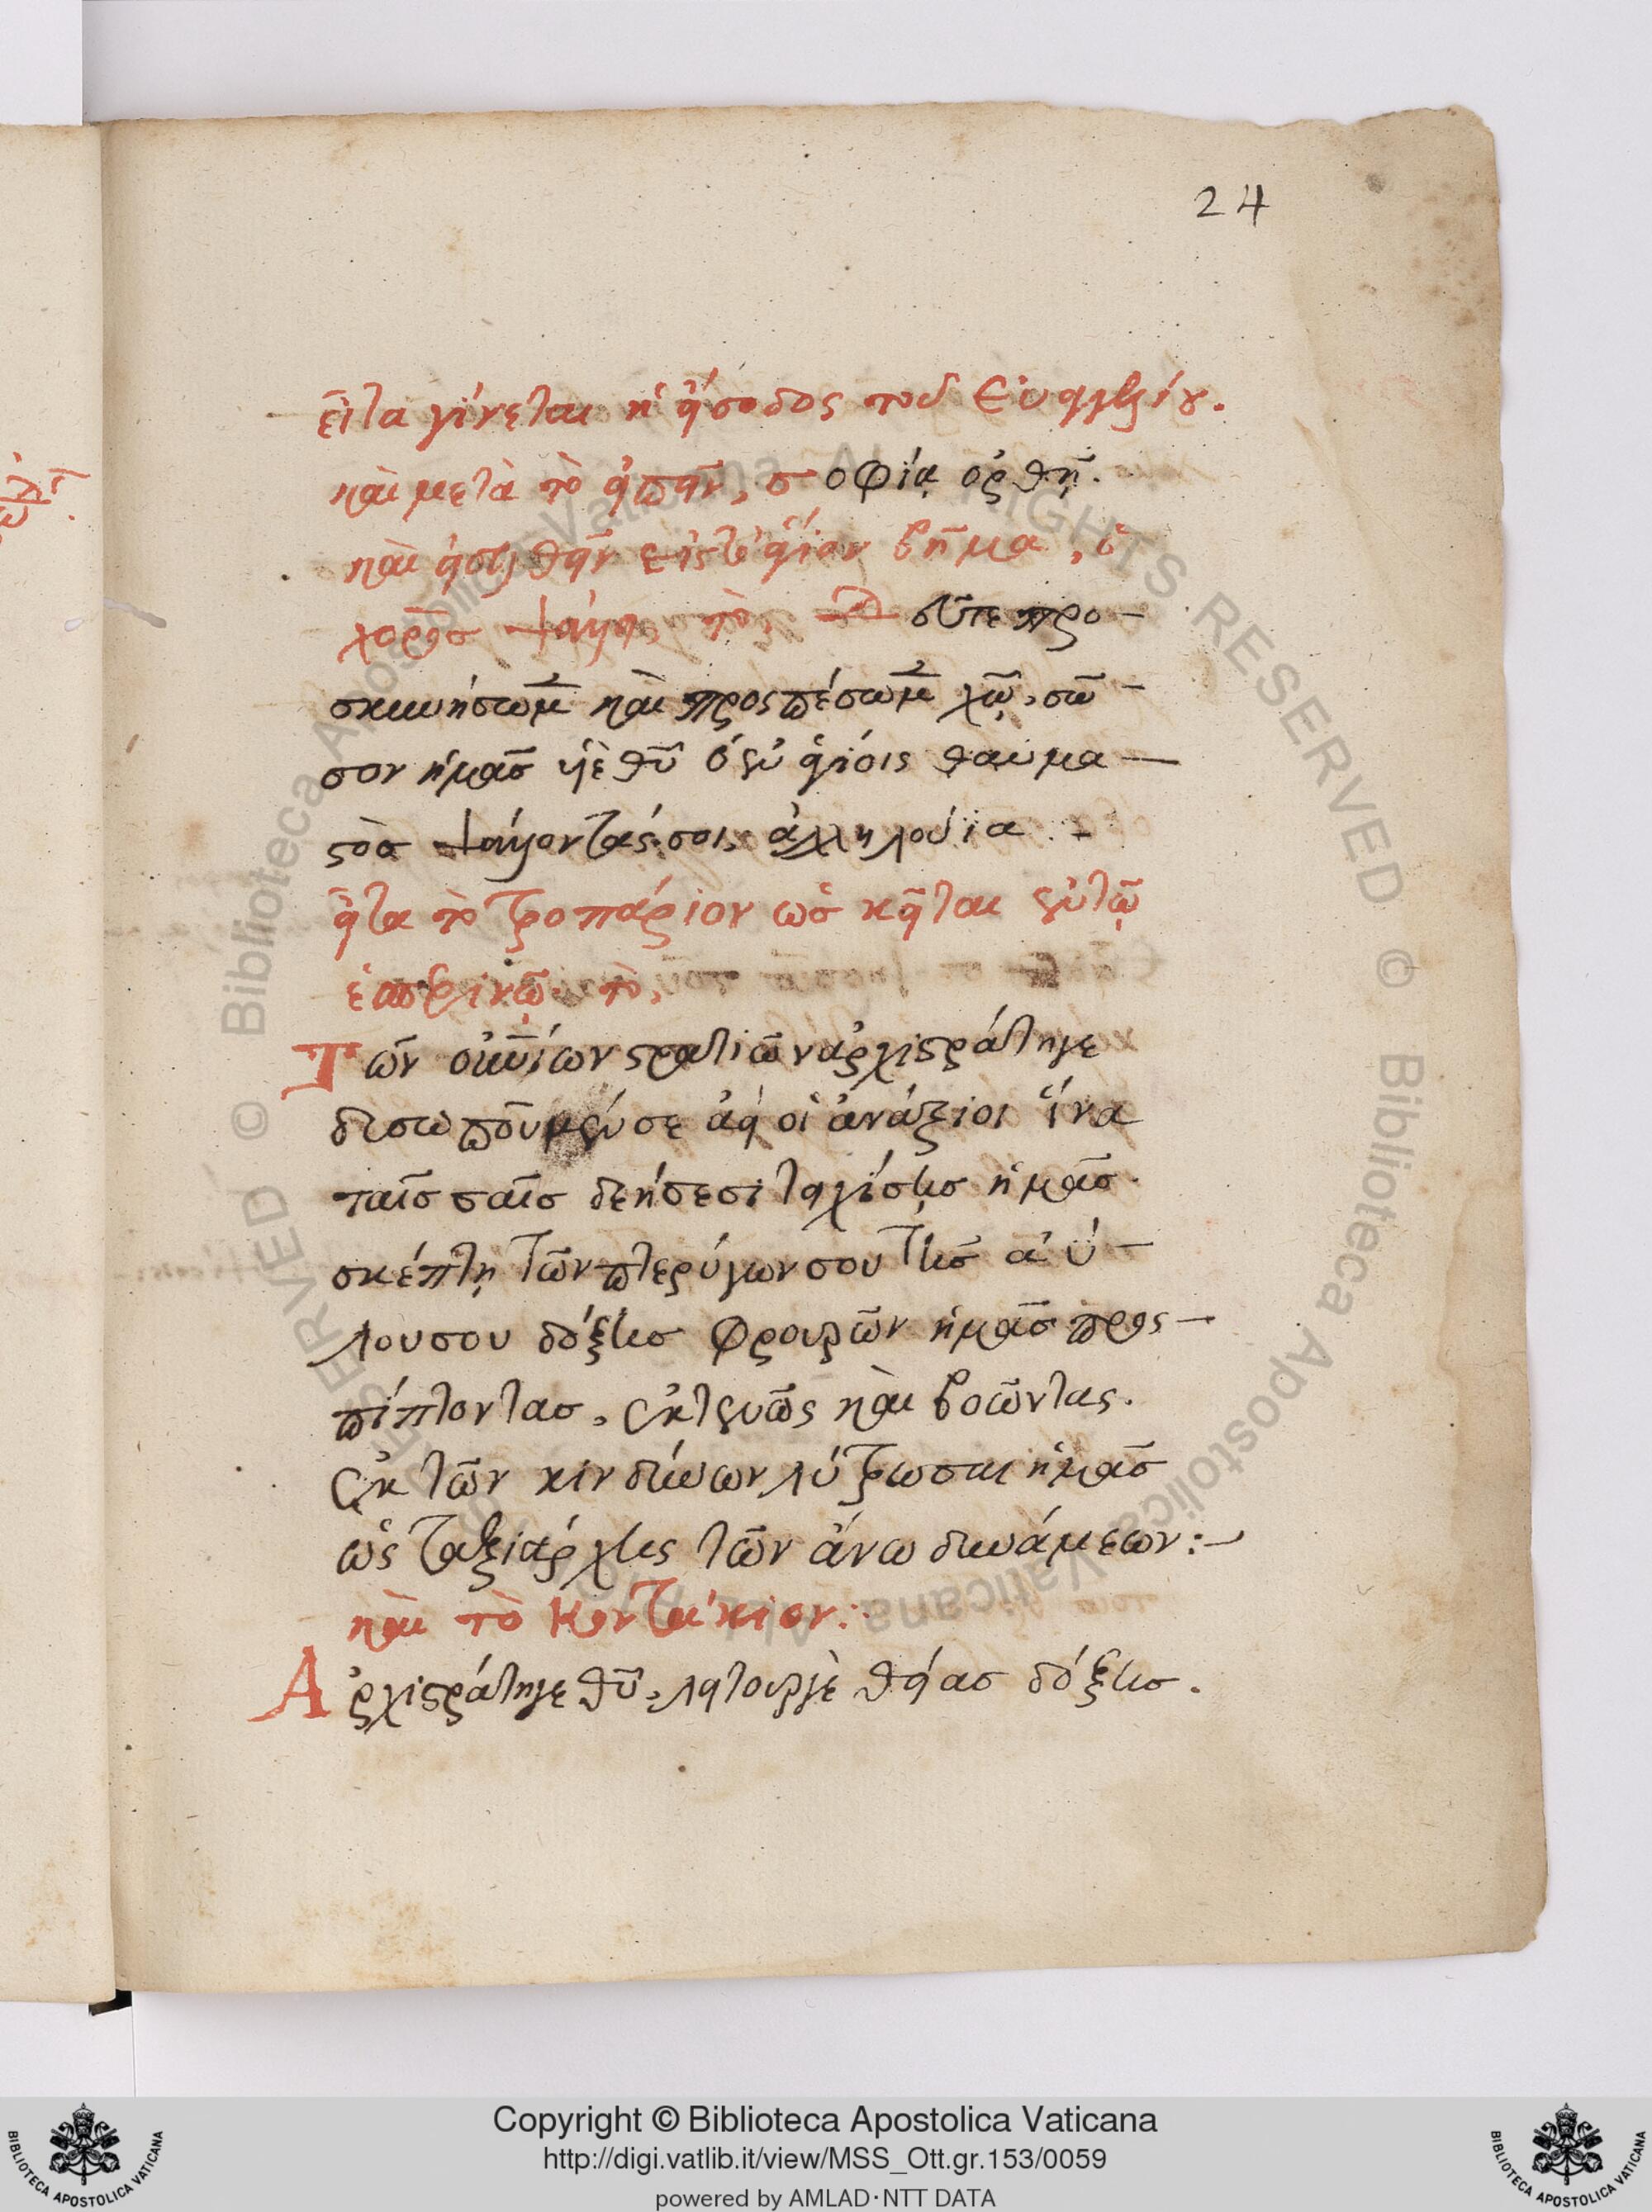 24
εἶτα γίνεται ἡ εἴσοδος τοῦ Εὐαγγελίου.
καὶ μετὰ τὸ εἰπεῖν, σοφία ὀρθοί.
καὶ εἰσελθεῖν εἰς τὸ ἅγιον βῆμα, ὁ
χορὸσ ψάλλει τὸ, Δεῦτε προ-
σκυνήσωμεν καὶ προσπέσωμεν χω, σῶ-
σον ἡμᾶσ υἱὲ θυ ὁ ἐν ἁγίοις θαυμα-
στὸσ ψάλλοντάς σοι, ἀλληλούϊα.
εἶτα τὸ τροπάριον ὡσ κεῖται ἐν τῶ
ἑσπερινῶ. τὸ,
Τῶν οὐνίων στρατιῶν ἀρχιστράτηγε
δυσωποῦμέν σε ἀεὶ οἱ ἀνάξιοι ἵνα
ταῖσ σαῖσ δεήσεσι τειχίσησ ἡμᾶσ
σκέπη τῶν πτερύγων σου τῆσ ἀΰ-
λου σου δόξησ φρουρῶν ἡμᾶσ προσ-
πίπτοντασ, ἐκτενῶς καὶ βοῶντας.
ἐκ τῶν κινδύνων λύτρωσαι ἡμᾶσ
ὡς ταξιάρχης τῶν ἄνω δυνάμεων:-
καὶ τὸ Κοντάκιον:
Ἀρχιστράτηγε θυ, λειτουργὲ θείασ δόξησ.
Copyright © Biblioteca Apostolica Vaticana
http://digi.vatlib.it/view/MSS_Ott.gr.153/0059
powered by AMLAD·NTT DATA
BIBLIOTECA APOSTOLICA VATICANA
BIBLIOTECA APOSTOLICA VATICANA